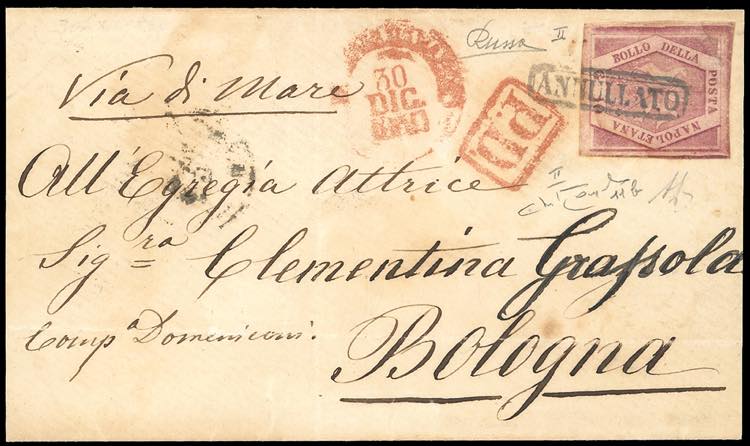 Russo II
30
DIC.
PD
BOLLO DELLA
POSTA
NAPOLETANA
ANNULLATO
Via di Mare
All'Egregia Attrice
Sig.ra Clementina Grassola
Comp.a Domeniconi.
Bologna